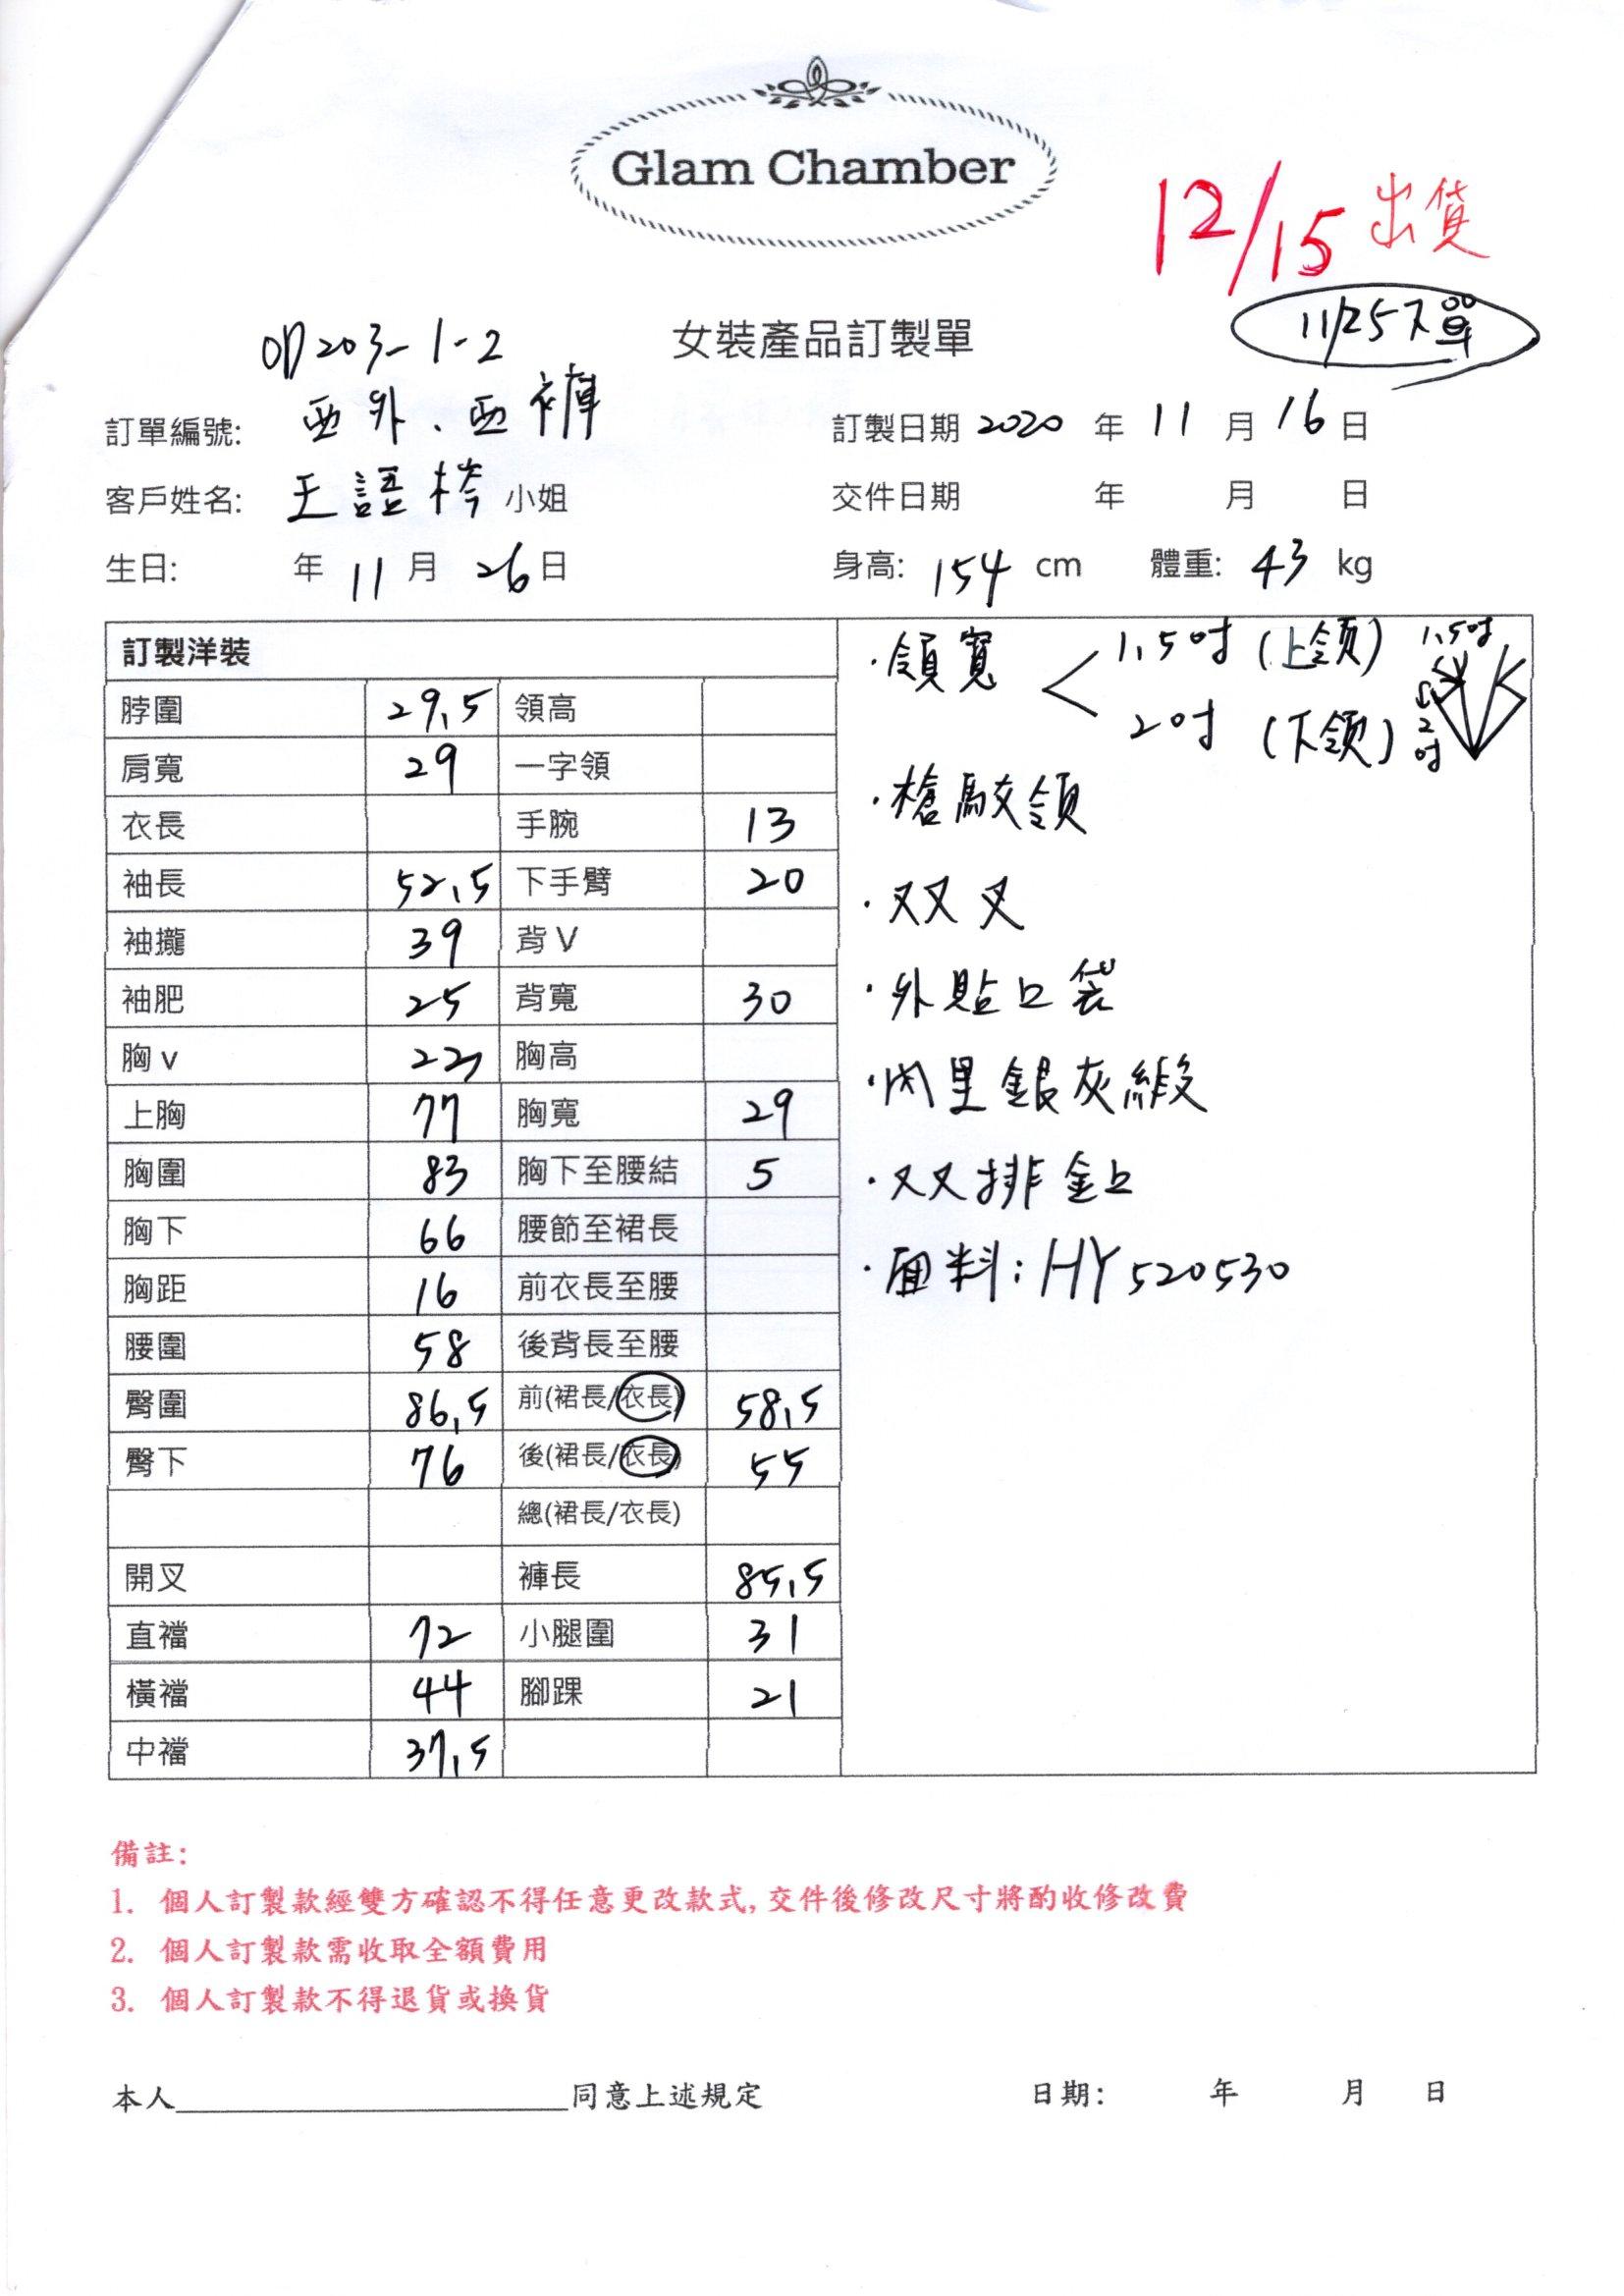 Glam Chamber
12/15 出貨
11/25下單
女裝產品訂製單
203-1-2
西外、西褲
訂單編號:
訂製日期 2020 年 11 月 16 日
客戶姓名: 王語梣 小姐
交件日期 年 月 日
生日: 年 11 月 26 日
身高: 154 cm 體重: 43 kg
訂製洋裝
脖圍 29.5 領高
肩寬 29 一字領
衣長 手腕 13
袖長 52.5 下手臂 20
袖攏 39 背V
袖肥 25 背寬 30
胸v 22 胸高
上胸 77 胸寬 29
胸圍 83 胸下至腰結 5
胸下 66 腰節至裙長
胸距 16 前衣長至腰
腰圍 58 後背長至腰
臀圍 86.5 前(裙長/衣長) 58.5
臀下 76 後(裙長/衣長) 55
總(裙長/衣長)
開叉 褲長 85.5
直襠 72 小腿圍 31
橫襠 44 腳踝 21
中襠 37.5
·領寬 1.5吋 (上領)
2吋 (下領)
1.5吋
2吋
·槍駁領
·双叉
·外貼口袋
·內里銀灰緞
·双排釦
·面料:HY520530
備註:
1. 個人訂製款經雙方確認不得任意更改款式,交件後修改尺寸將酌收修改費
2. 個人訂製款需收取全額費用
3. 個人訂製款不得退貨或換貨
本人____________同意上述規定 日期: 年 月 日